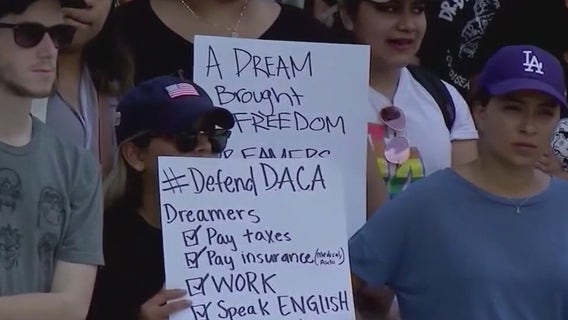 A DREAM
Brought
FREEDOM
DREAMERS
#DefendDACA
Dreamers
Pay taxes
Pay insurance (medical/Auto)
WORK
Speak ENGLISH
LA